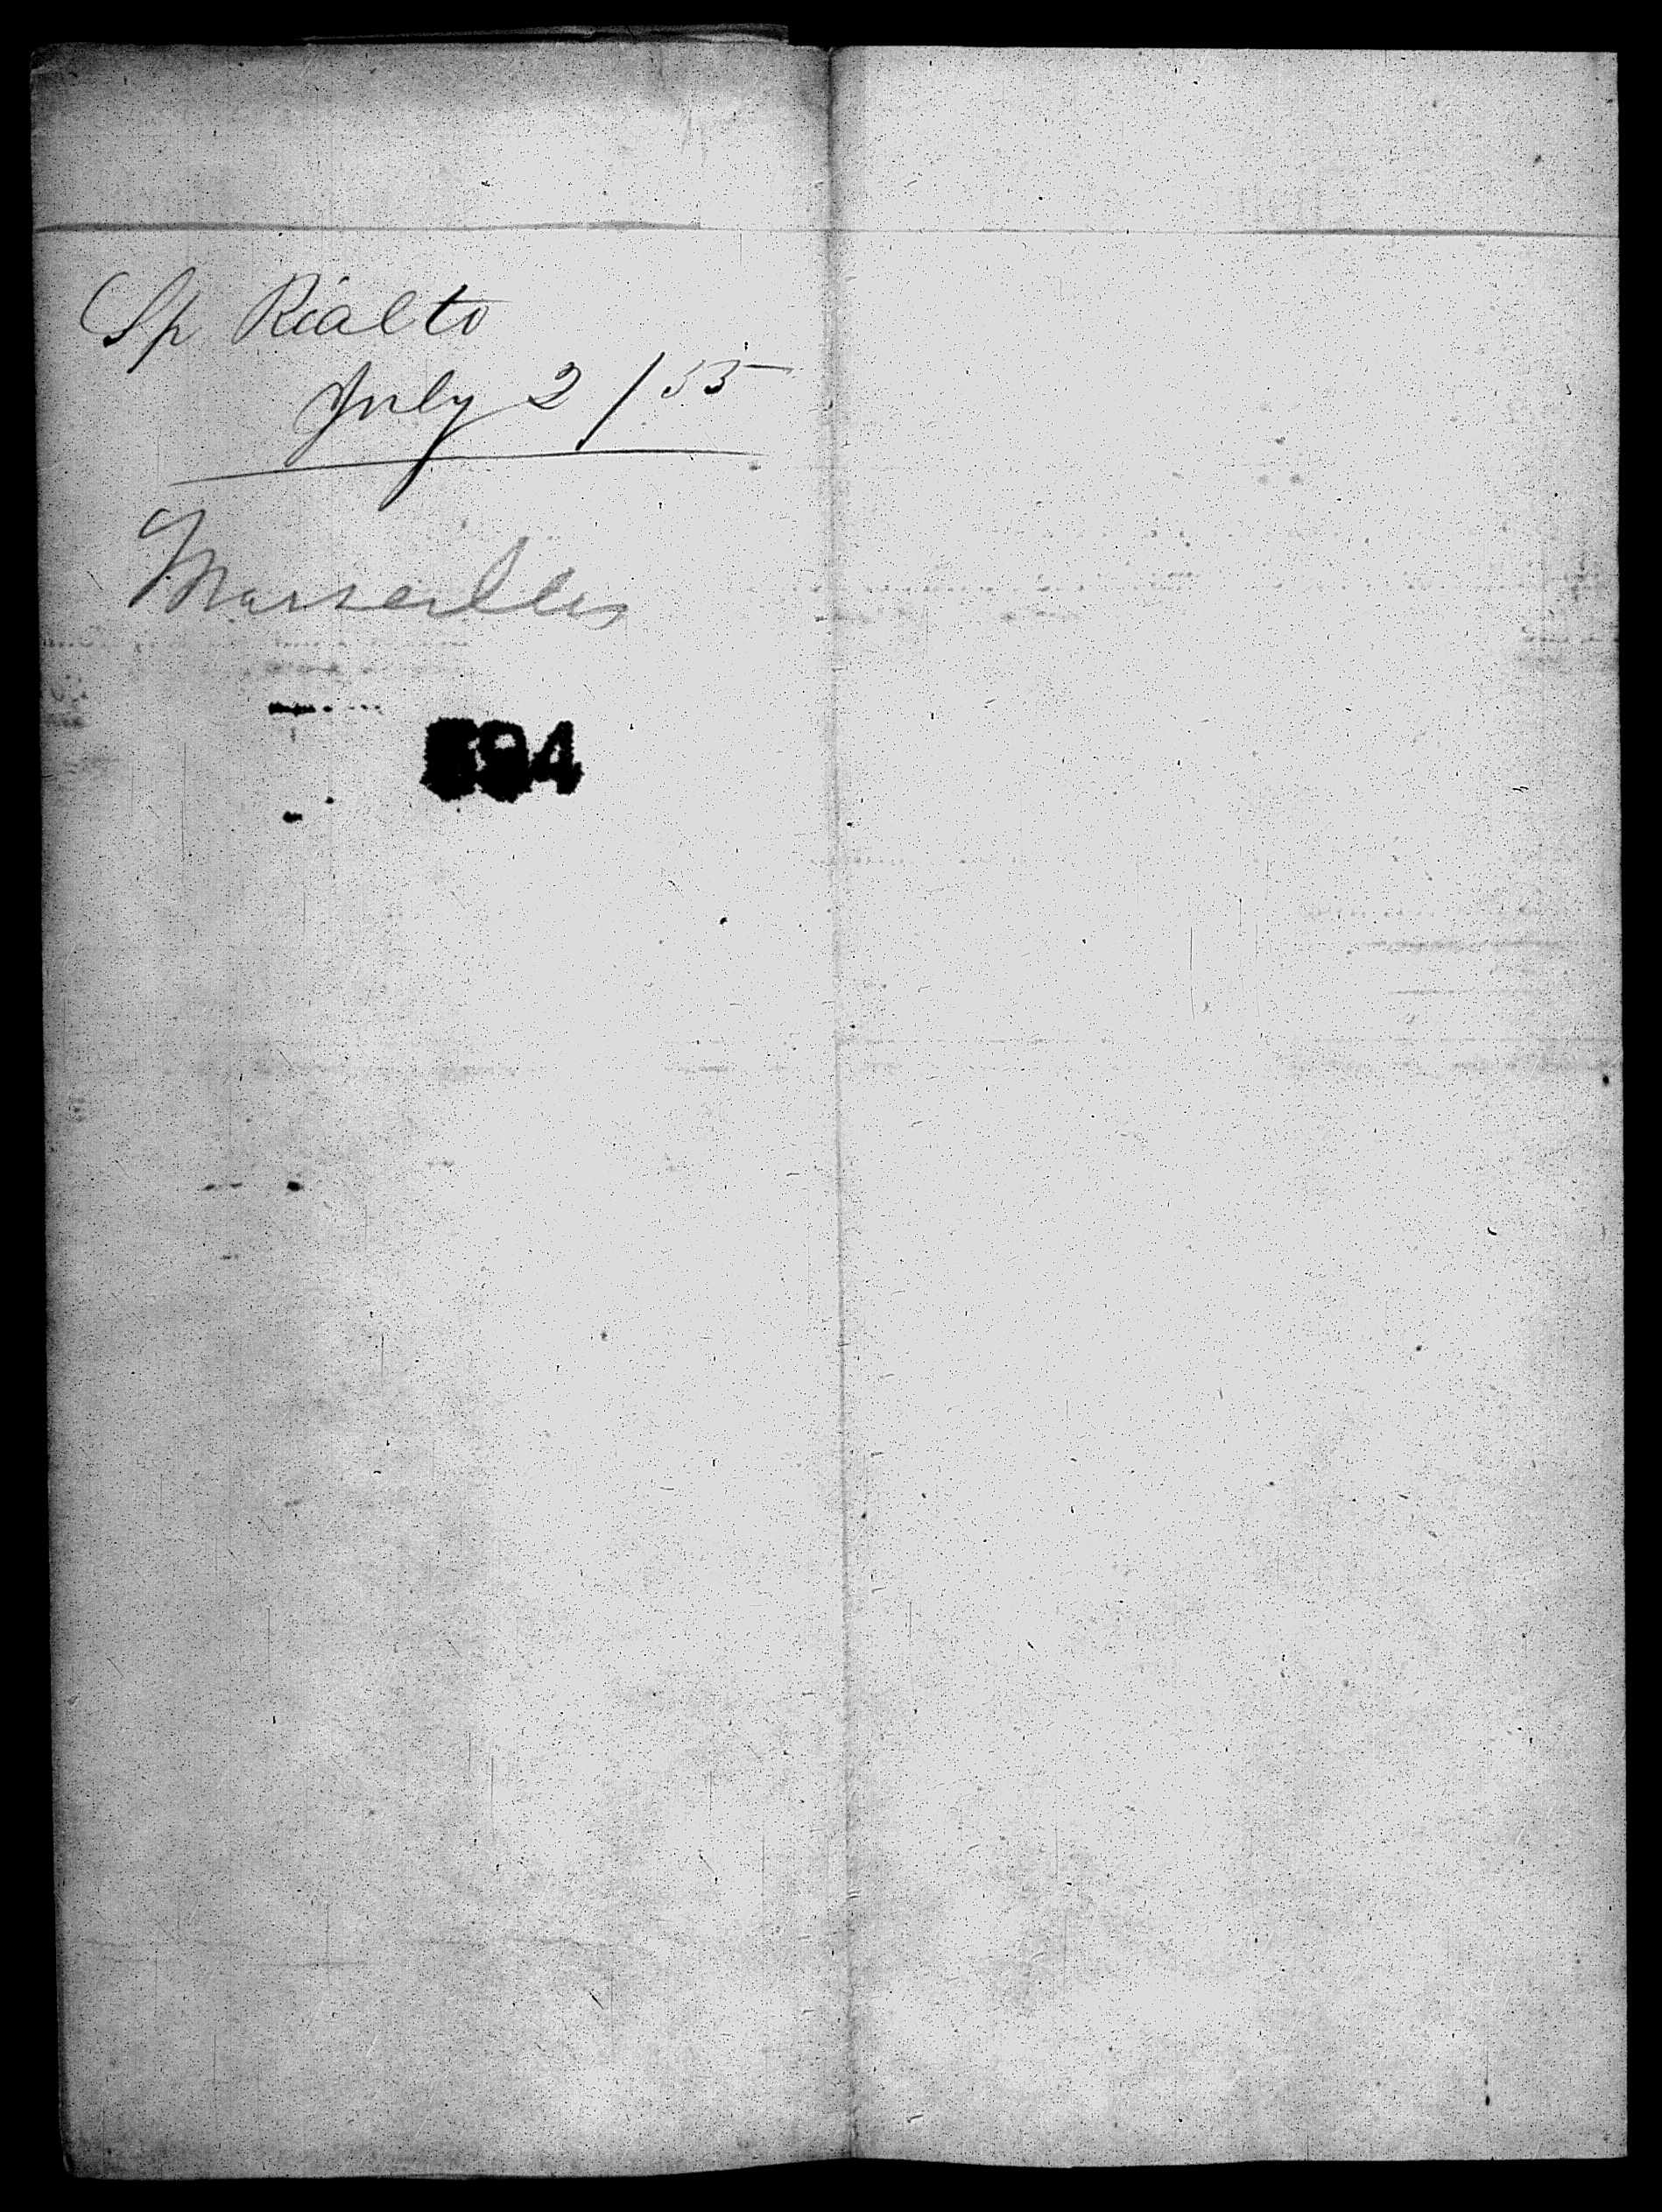 Sp Rialto
July 2 / 55
Marseilles
594